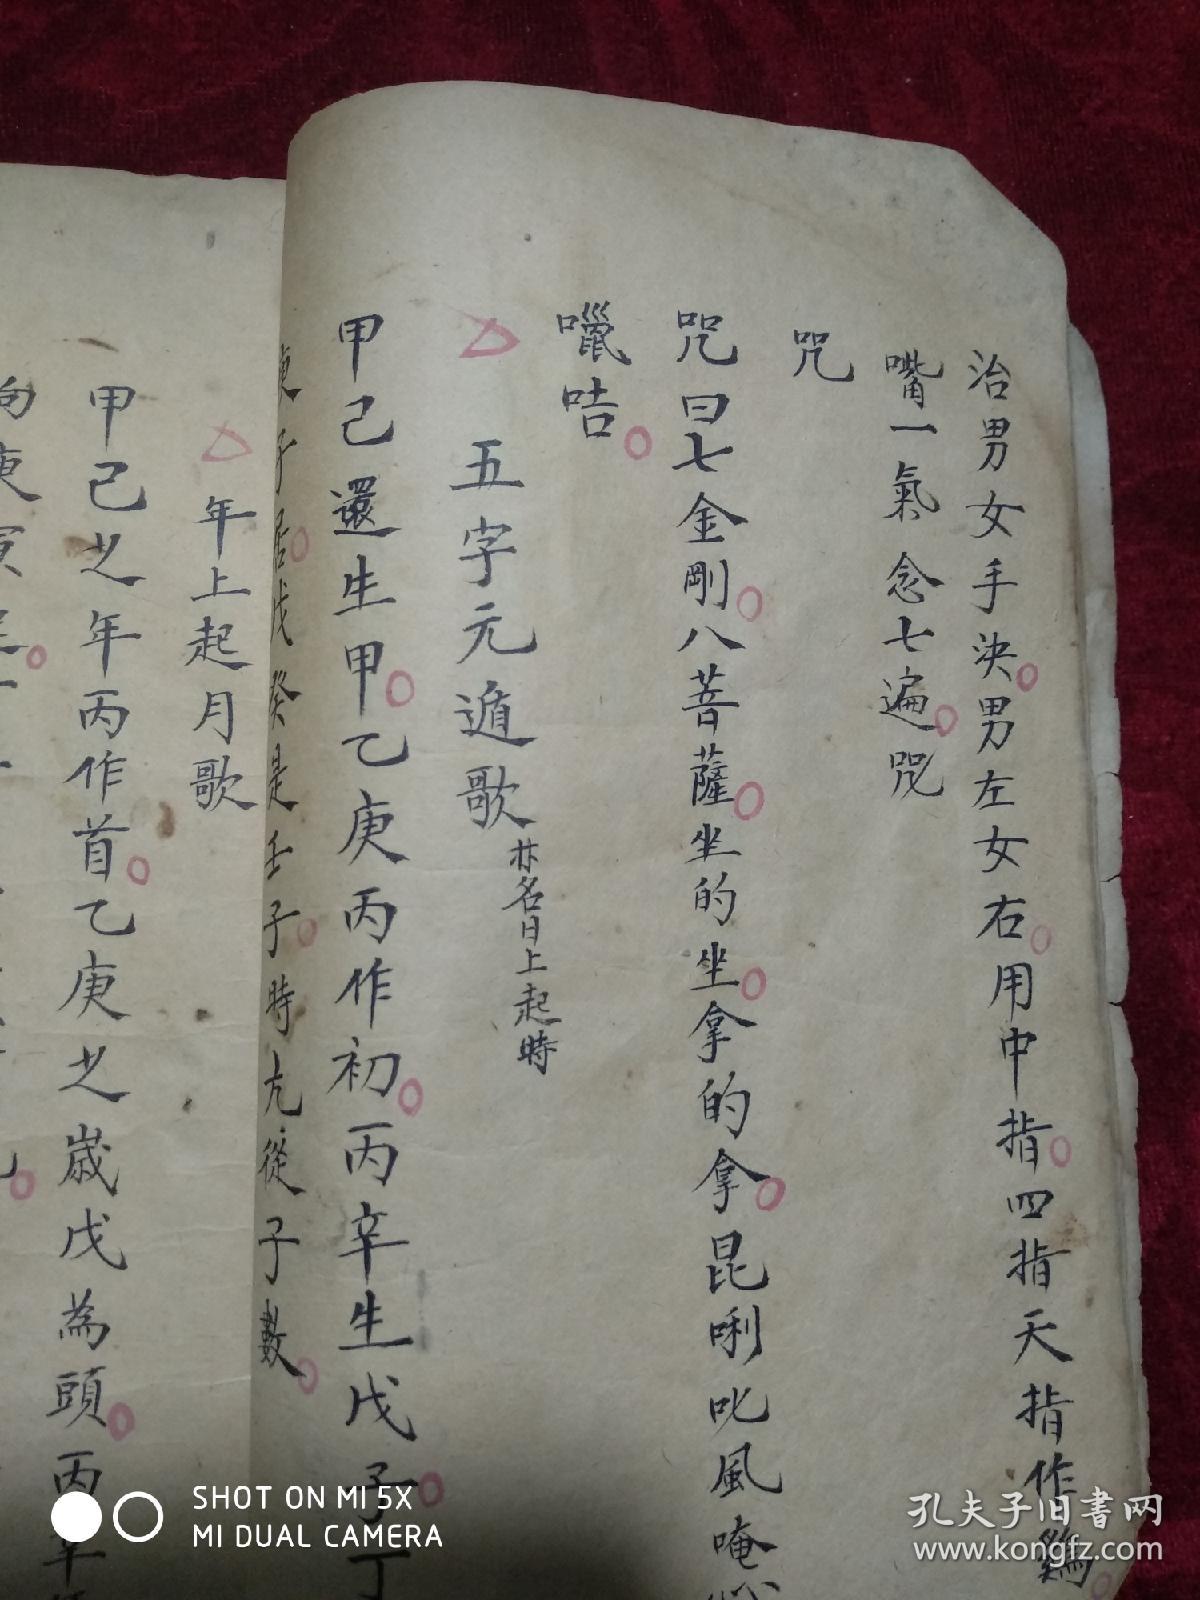 治男女手决男左女右用中指四指天指作鷄
嘴一氣念七遍咒
咒
咒曰七金剛八菩薩坐的坐拿的拿昆唎叱風唵
囉咭
五字元遁歌 林名日上起時
甲己還生甲乙庚丙作初丙辛生戊子丁
庚子居戊癸是壬子時元從子數
年上起月歌
甲己之年丙作首乙庚之歲戊為頭丙辛
向庚寅
SHOT ON MI 5X
MI DUAL CAMERA
孔夫子旧书网
www.kongfz.com